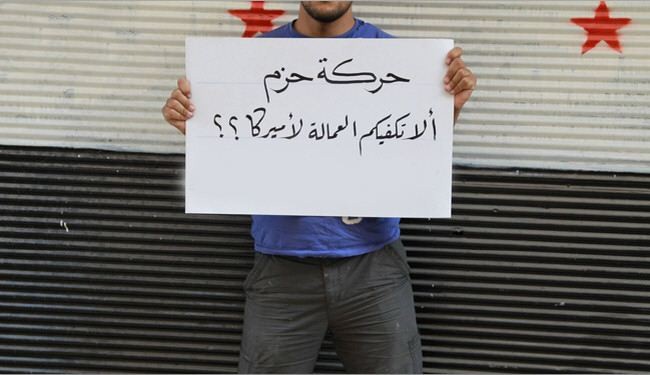 حركة حزم
ألا تكفيكم العمالة لأميركا ؟؟